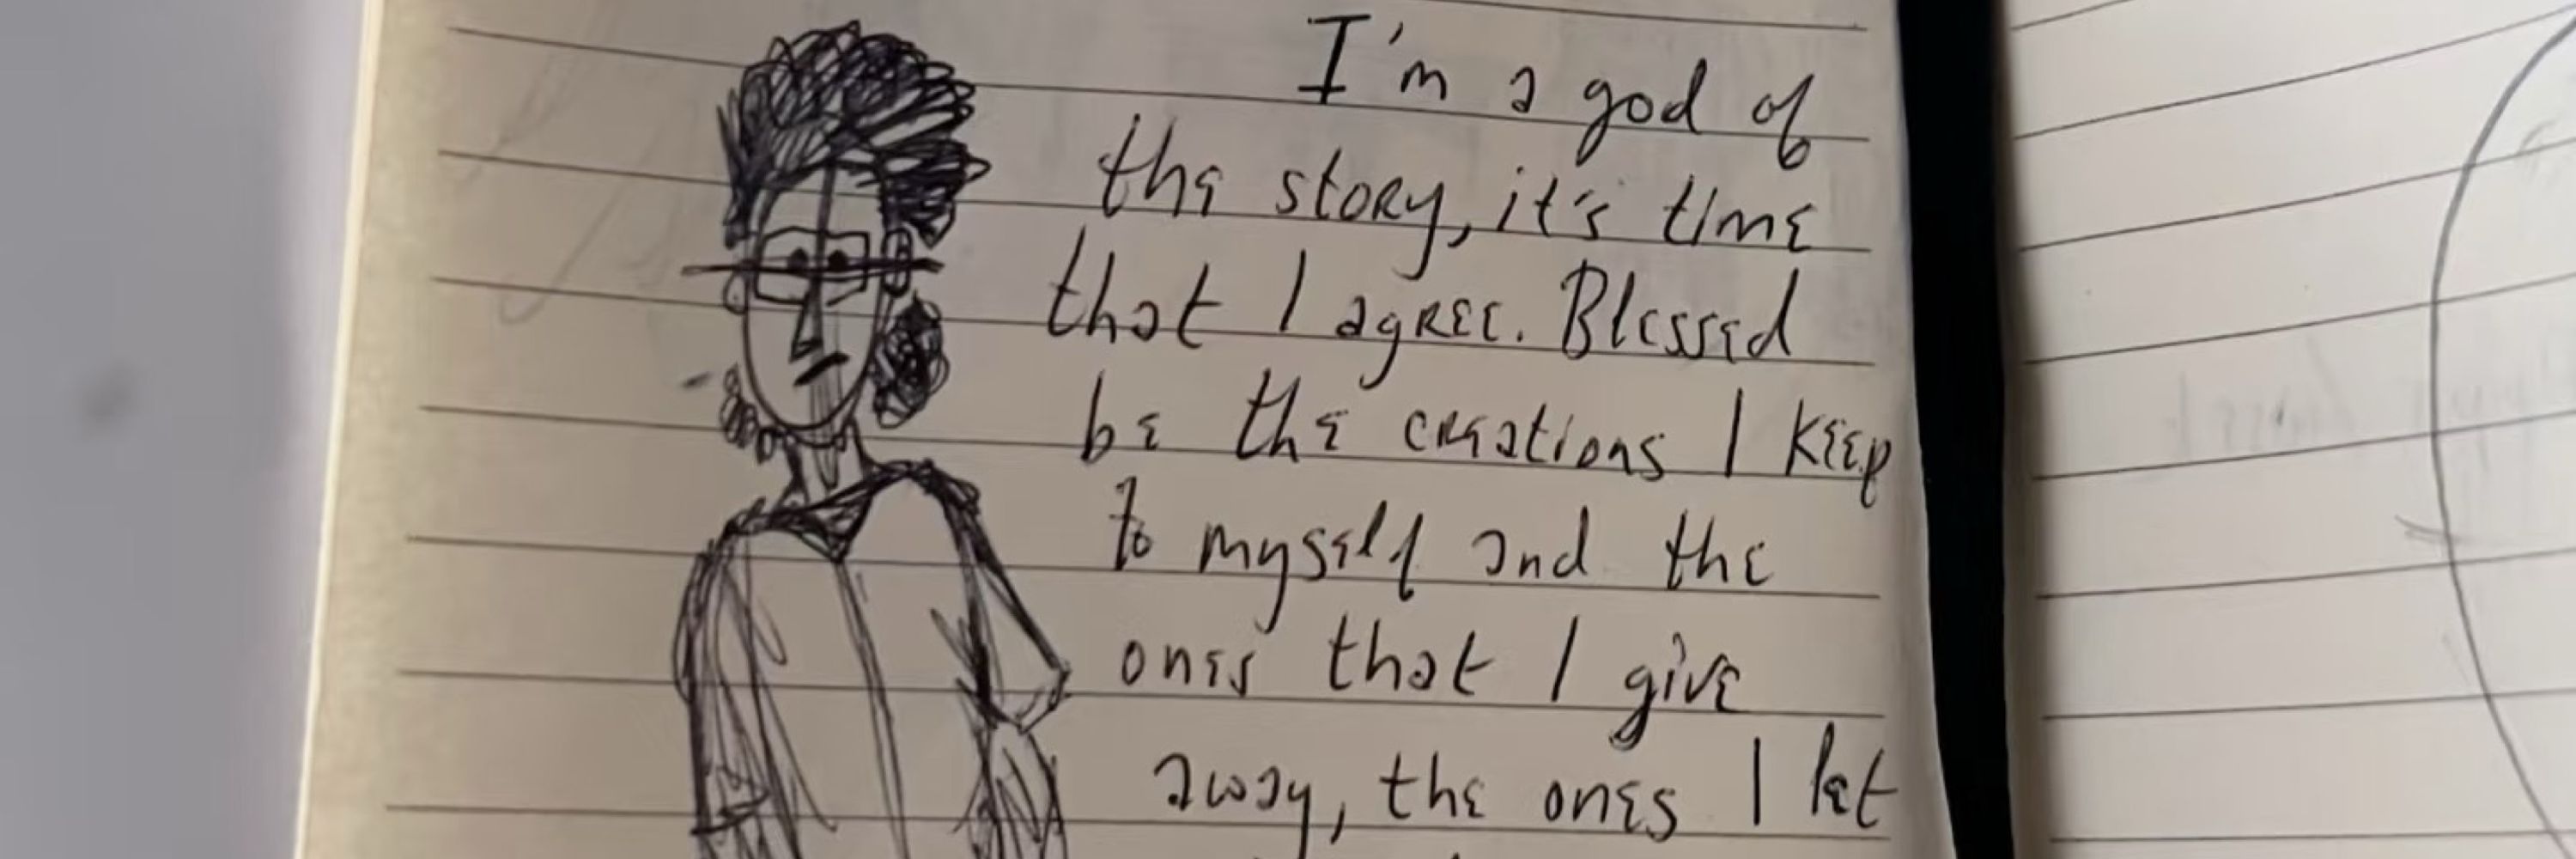 I'm a god of
the story, it's time
that I agree. Blessed
be the creations I keep
to myself and the
ones that I give
away, the ones I let